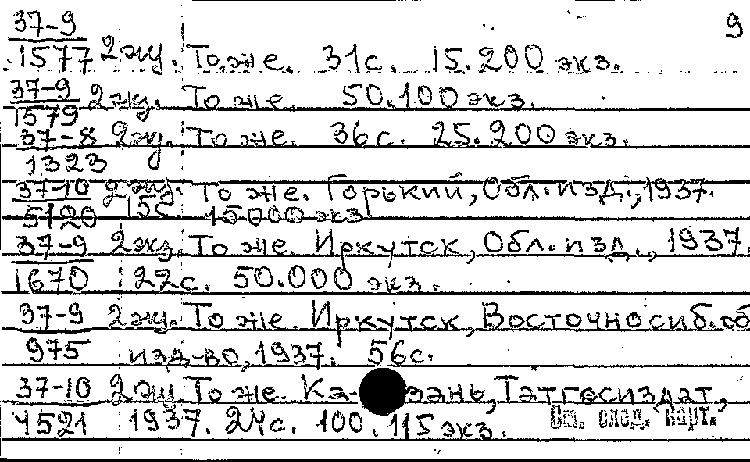 37-9 9
1577 2экз. То же. 31с. 15.200 экз.
37-9 2экз. То же. 50.100 экз.
1579
37-8 2экз. То же. 36с. 25.200 экз.
1323
37-10 2экз. То же. Горький, Обл. изд., 1937.
5120 15с. 15000 экз
37-9 2экз. То же. Иркутск, Обл. изд., 1937.
1670 22с. 50.000 экз.
37-9 2экз. То же. Иркутск, Восточносиб. об
975 изд-во, 1937. 56с.
37-10 2экз. То же. Ка- зань, Татгосиздат,
4521 1937. 24с. 100.115 экз. См. след. карт.